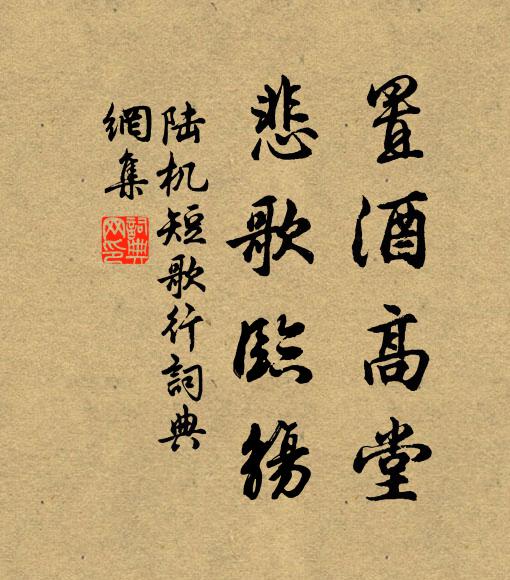 置酒高堂
悲歌臨觴
陆机短歌行詞典
網集
詞典
网印